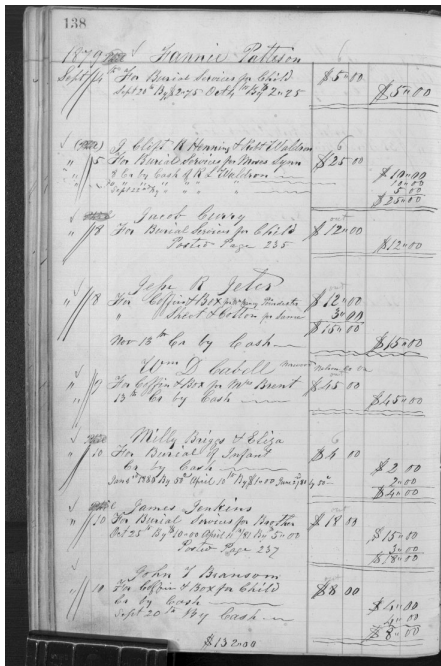 138
1879 Fannie Patteson
Sept 4th For Burial Services for Child $5"00
Sept 20th By $2"75 Oct 4th By 2"25 $5"00
R Henning & Waldron
" 5 For Burial Services for Moses Lynn $25"00
& Cr by Cash of R L Waldron $10"00
10"00
5 00
$25"00
Jacob Curry
" 8 For Burial Services for Child $12"00
Posted Page 235 $12"00
Jesse R Jeter
" 8 For Coffin & Box for $12"00
" Sheet & Cotton for Same 3"00
$15"00
Nov 13th Cr by Cash $15"00
Wm D Cabell
" 9 For Coffin & Box for Mrs Brent $45"00
13th Cr by Cash $45"00
Milly Briggs & Eliza
" 10 For Burial of Infant $4 00
Cr by Cash $2 00
1880 By 50c April 10th By $1"00 2"00
$4"00
James Jenkins
" 10 For Burial Services for Brother $18 00
Oct 25th By 10"00 April 11th '81 By 5"00 $15"00
3"00
Posted Page 237 $18"00
John T Bransom
" 10 For Coffin & Box for Child $8 00
Cr by Cash
Sept 20th By Cash
$8"00
$132"00